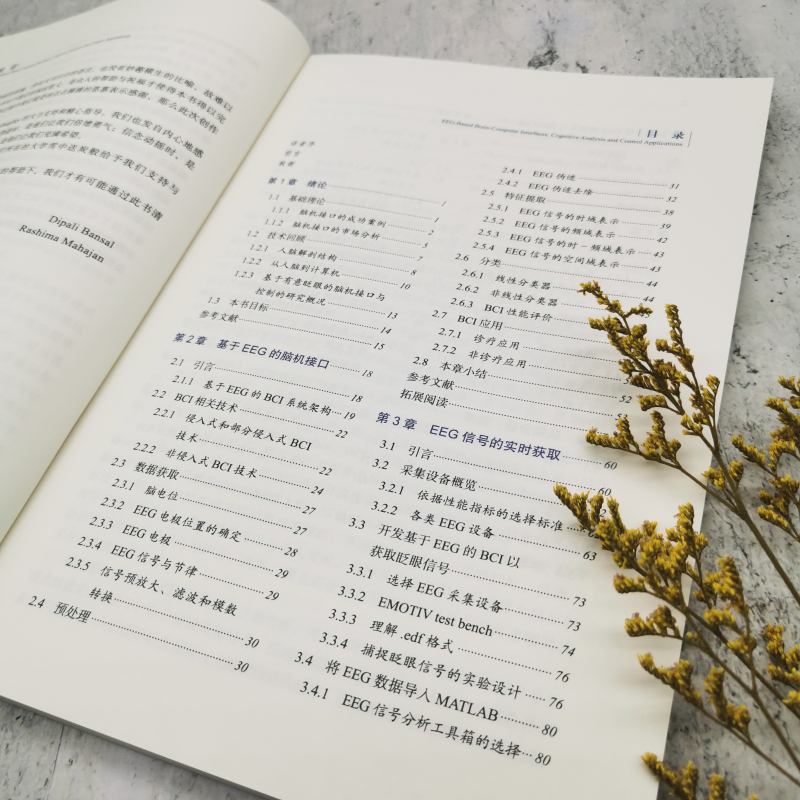 也没有妙趣横生的比喻，故难以
使得本书得以完
表示感谢，那么此次创作
我们也发自内心地感
信念动摇时，是
给予我们支持与
的帮助下，我们才有可能通过此书清
Dipali Bansal
Rashima Mahajan
EEG-Based Brain-Computer Interfaces: Cognitive Analysis and Control Applications
目 录
译者序
前言
致谢
第1章 绪论 1
1.1 基础理论 1
1.1.1 脑机接口的成功案例 2
1.1.2 脑机接口的市场分析 5
1.2 技术回顾 7
1.2.1 人脑解剖结构 8
1.2.2 从人脑到计算机 10
1.2.3 基于有意眨眼的脑机接口与
控制的研究概况 13
1.3 本书目标 14
参考文献 15
第2章 基于EEG的脑机接口 18
2.1 引言 18
2.1.1 基于EEG的BCI系统架构 19
2.2 BCI相关技术 22
2.2.1 侵入式和部分侵入式BCI
技术 22
2.2.2 非侵入式BCI技术 24
2.3 数据获取 27
2.3.1 脑电位 27
2.3.2 EEG电极位置的确定 28
2.3.3 EEG电极 29
2.3.4 EEG信号与节律 29
2.3.5 信号预放大、滤波和模数
转换 30
2.4 预处理 30
2.4.1 EEG伪迹 31
2.4.2 EEG伪迹去除 32
2.5 特征提取 38
2.5.1 EEG信号的时域表示 39
2.5.2 EEG信号的频域表示 42
2.5.3 EEG信号的时-频域表示 43
2.5.4 EEG信号的空间域表示 43
2.6 分类 44
2.6.1 线性分类器 44
2.6.2 非线性分类器
2.6.3 BCI性能评价
2.7 BCI应用
2.7.1 诊疗应用
2.7.2 非诊疗应用
2.8 本章小结
参考文献 52
拓展阅读 53
第3章 EEG信号的实时获取 60
3.1 引言 60
3.2 采集设备概览
3.2.1 依据性能指标的选择标准
3.2.2 各类EEG设备 63
3.3 开发基于EEG的BCI以
获取眨眼信号 73
3.3.1 选择EEG采集设备 73
3.3.2 EMOTIV test bench 74
3.3.3 理解.edf格式 76
3.3.4 捕捉眨眼信号的实验设计 76
3.4 将EEG数据导入MATLAB 80
3.4.1 EEG信号分析工具箱的选择 80